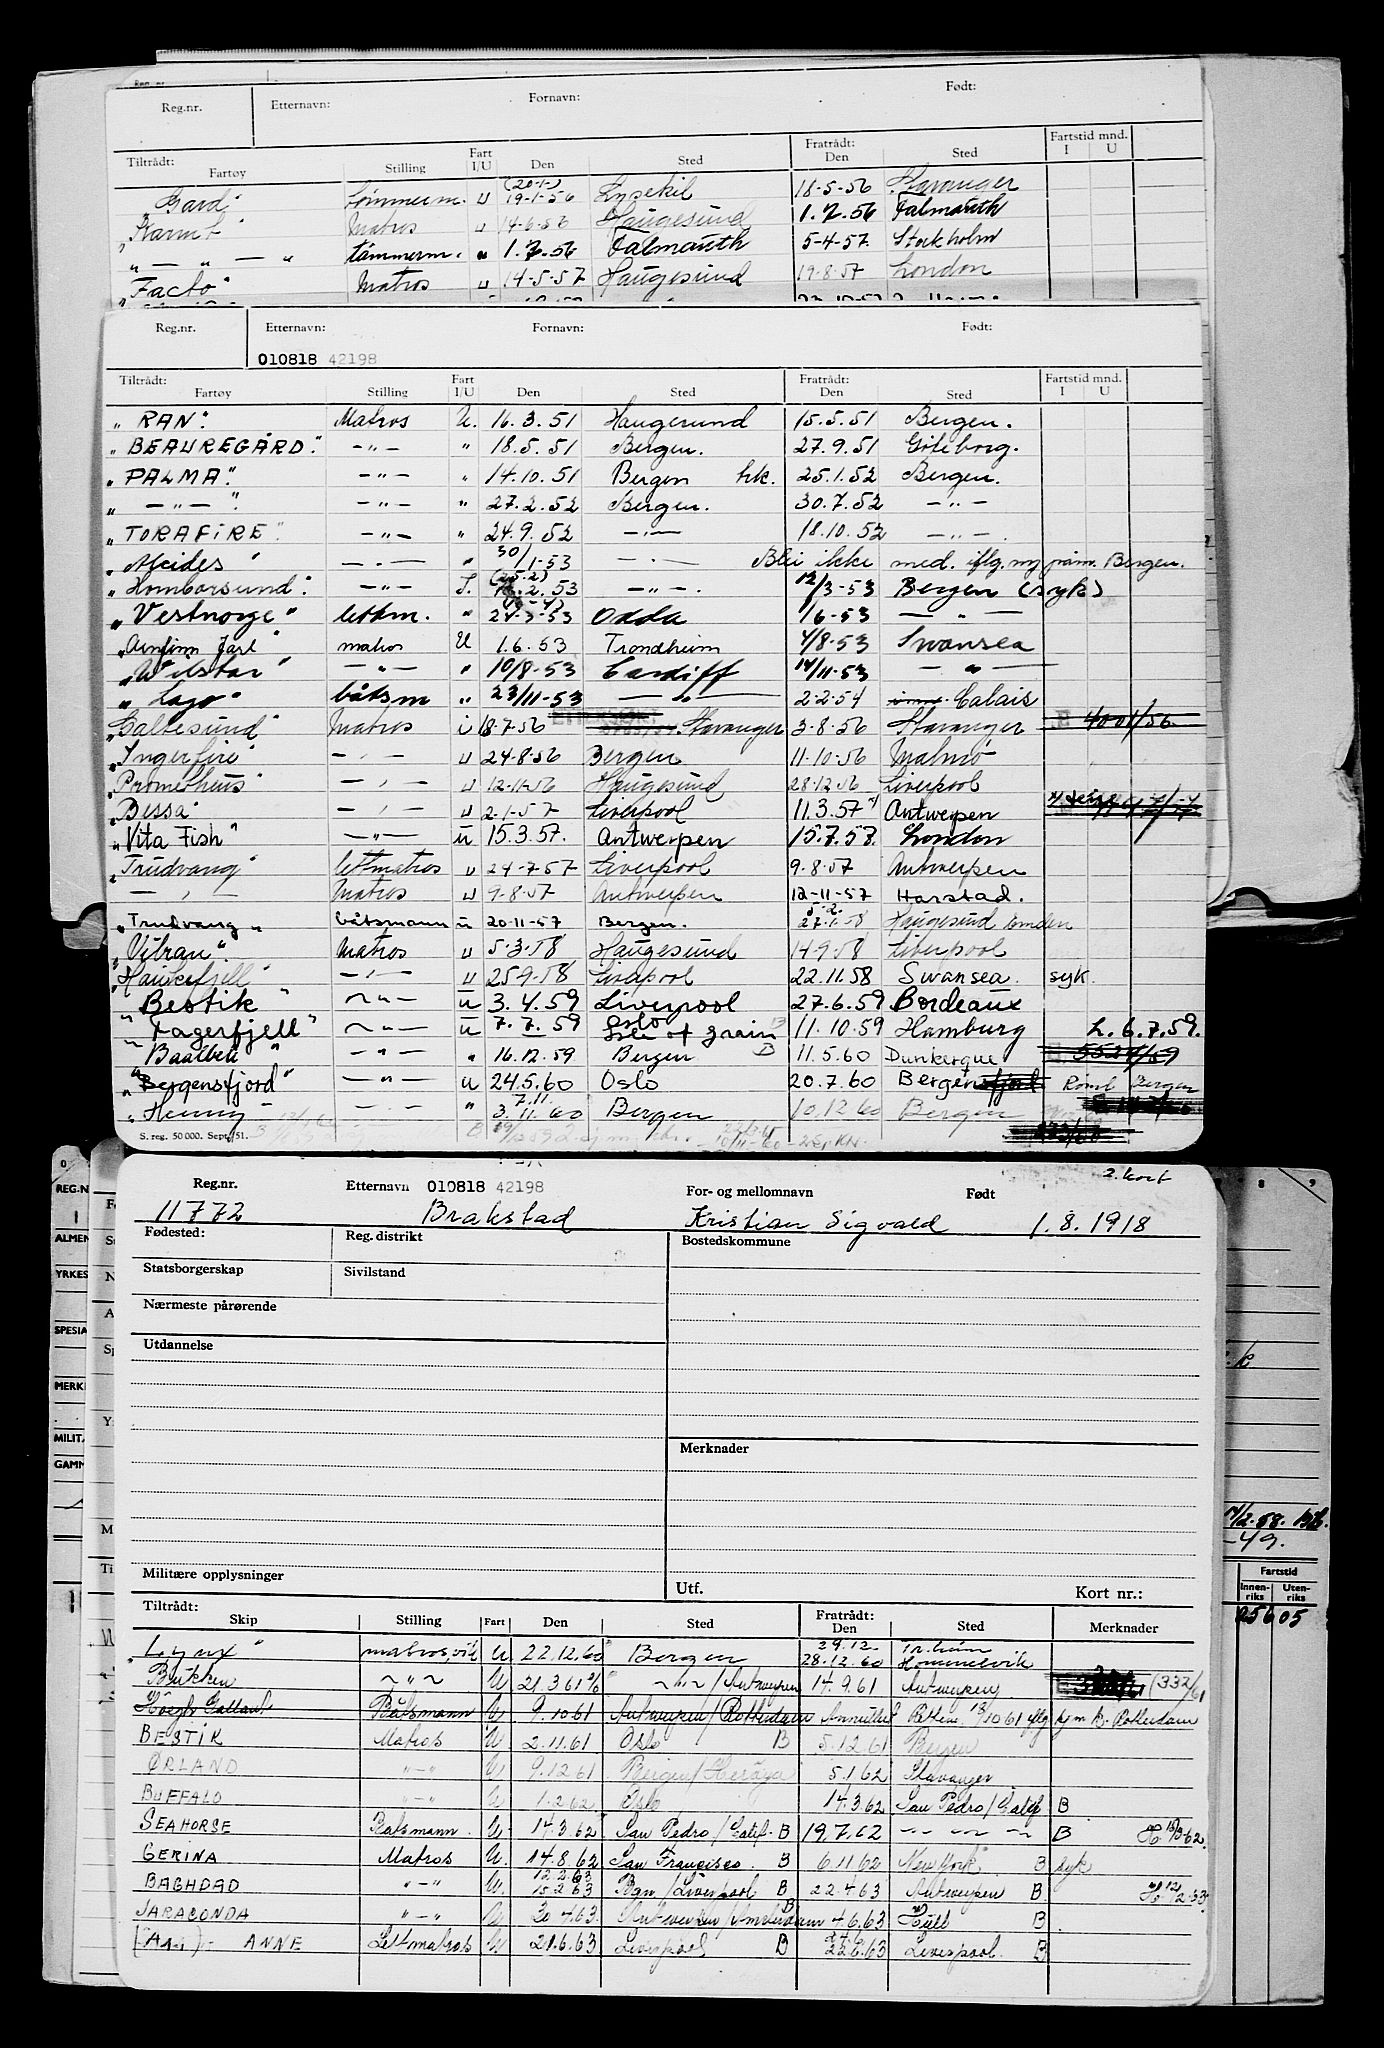 Reg.nr. Etternavn: Fornavn: Født:
Tiltrådt: Fartøy Stilling Fart I/U Den Sted Fratrådt: Den Sted Fartstid mnd. I U
(20-1-)
"Gard" tømmerm. u 19-1-56 Lysekil 18-5-56 Stavanger
"Karmt" Matros u 14-6-56 Haugesund 1.7.56 Falmouth
" — " — " tømmerm. " 1.7.56 Falmouth 5-4-57. Stockholm
"Facto" Matros u 14-5-57 Haugesund 19-8-57 London
Reg.nr. Etternavn: Fornavn: Født:
010818 42198
Tiltrådt: Fartøy Stilling Fart I/U Den Sted Fratrådt: Den Sted Fartstid mnd. I U
"RAN". Matros U. 16.3.51 Haugesund 15.5.51 Bergen.
"BEAUREGARD". —"— " 18.5.51 Bergen. 27.9.51 Göteborg.
"PALMA". —"— " 14.10.51 Bergen hk. 25.1.52 Bergen.
" —"— ". —"— " 27.2.52 Bergen. 30.7.52 —"—
"TORAFIRE" —"— " 24.9.52 —"— 18.10.52 —"—.
"Alcides" —"— " 30/1-53 —"— Blei ikke med. iflg. mg. påm. Bergen.
(25.2)
"Homborsund". —"— I. 2.53 —"—. 12/3-53 Bergen (syk)
"Vestnorge" lettm. " 24-3-53 Odda 1/6-53 — " —
"Arnfinn Jarl" matros U 1.6.53 Trondheim 4/8-53 Swansea
"Wilstar" —"— " 10/8-53 Cardiff 14/11-53 — " —
"Lago" båtsm " 23/11-53 —"— 2-2-54 Calais
"Galtesund" Matros i 18-7-56 Stavanger 3-8-56 Stavanger 4001/56
"Ingerfire" —"— u 24-8-56 Bergen 11-10-56 Malmö
"Prometheus" —"— u 12-11-56 Haugesund 28-12-56 Liverpool
"Bessa" —"— u 2-1-57 Liverpool 11.3.57 Antwerpen
"Vita Fish" —"— u 15.3.57. Antwerpen 15.7.57. London
"Trudvang" lettmatros u 24-7-57 Liverpool 9-8-57 Antwerpen
— " — Matros u 9-8-57 Antwerpen 12-11-57 Harstad.
5-2.
"Trudvang" båtsmann u 20-11-57 Bergen. 27-1-58 Haugesund Emden
"Vibran". Matros u 5-3-58 Haugesund 14-9-58 Liverpool
"Haukefjell" —"— u 25-9-58 Liverpool 22.11.58 Swansea. syk.
"Bestik" —"— u 3.4.59 Liverpool 27.6.59 Bordeaux
"Fagerfjell" —"— u 7.7.59 Oslo Isle of grain B 11.10.59 Hamburg h. 6.7.59.
"Baalbek" —"— " 16.12.59 Bergen B 11.5.60 Dunkerque 5524/59
"Bergensfjord" —"— u 24.5.60 Oslo 20.7.60 Bergensfjord Rømt Bergen
7.11.
"Henny —"— " 3.11.60 Bergen 10.12.60 Bergen
S. reg. 50 000. Sept. 51.
2. kort
Reg.nr. Etternavn 010818 42198 For- og mellomnavn Født
11772 Brakstad Kristian Sigvald 1.8.1918
Fødested: Reg. distrikt Bostedskommune
Statsborgerskap Sivilstand
Nærmeste pårørende
Utdannelse
Merknader
Militære opplysninger Utf. Kort nr.:
Tiltrådt: Skip Stilling Fart Den Sted Fratrådt: Den Sted Merknader
29.12. Tr.heim
"Lynx" matros, vik U. 22.12.60 Bergen 28.12.60 Hommelvik
"Bükken ~"~ U 21.3.61 ~"~/Antwerpen 14.9.61 Antwerpen (332/61
Höegh Gallant Båtsmann U. 9.10.61 Antwerpen/Rotterdam Annullert 13/10 61 iflg hj.m.k. Rotterdam
BESTIK Matros U. 2.11.61 Oslo B 5.12.61 Bergen
ØRLAND "—" U 9.12.61 Bergen/Herøya 5.1.62 Stavanger
BUFFALO "—" U 1.2.62 Oslo 14.3.62 San Pedro/Calif B
SEAHORSE Båtsmann. U. 14.3.62 San Pedro/Calif. B 19.7.62 ~ ~ ~ B
GERINA Matros U. 14.8.62 San Francisco. B 6.11.62 New York B syk
12.2.63
BAGHDAD "—" U. 15.2.63 Bgn/Liverpool B 22.4.63 Antwerpen B
JARACONDA "—" U 30.4.63 Antwerpen/Amsterdam B 4.6.63 Hull B
ANNE Lettmatros U 21.6.63 Liverpool B 22.6.63 Liverpool. B
REG.N
ALMEN
YRKES
SPESIA
MERK
MILITÆ
GAMM
-49.
Fartstid
Innenriks Utenriks
25605